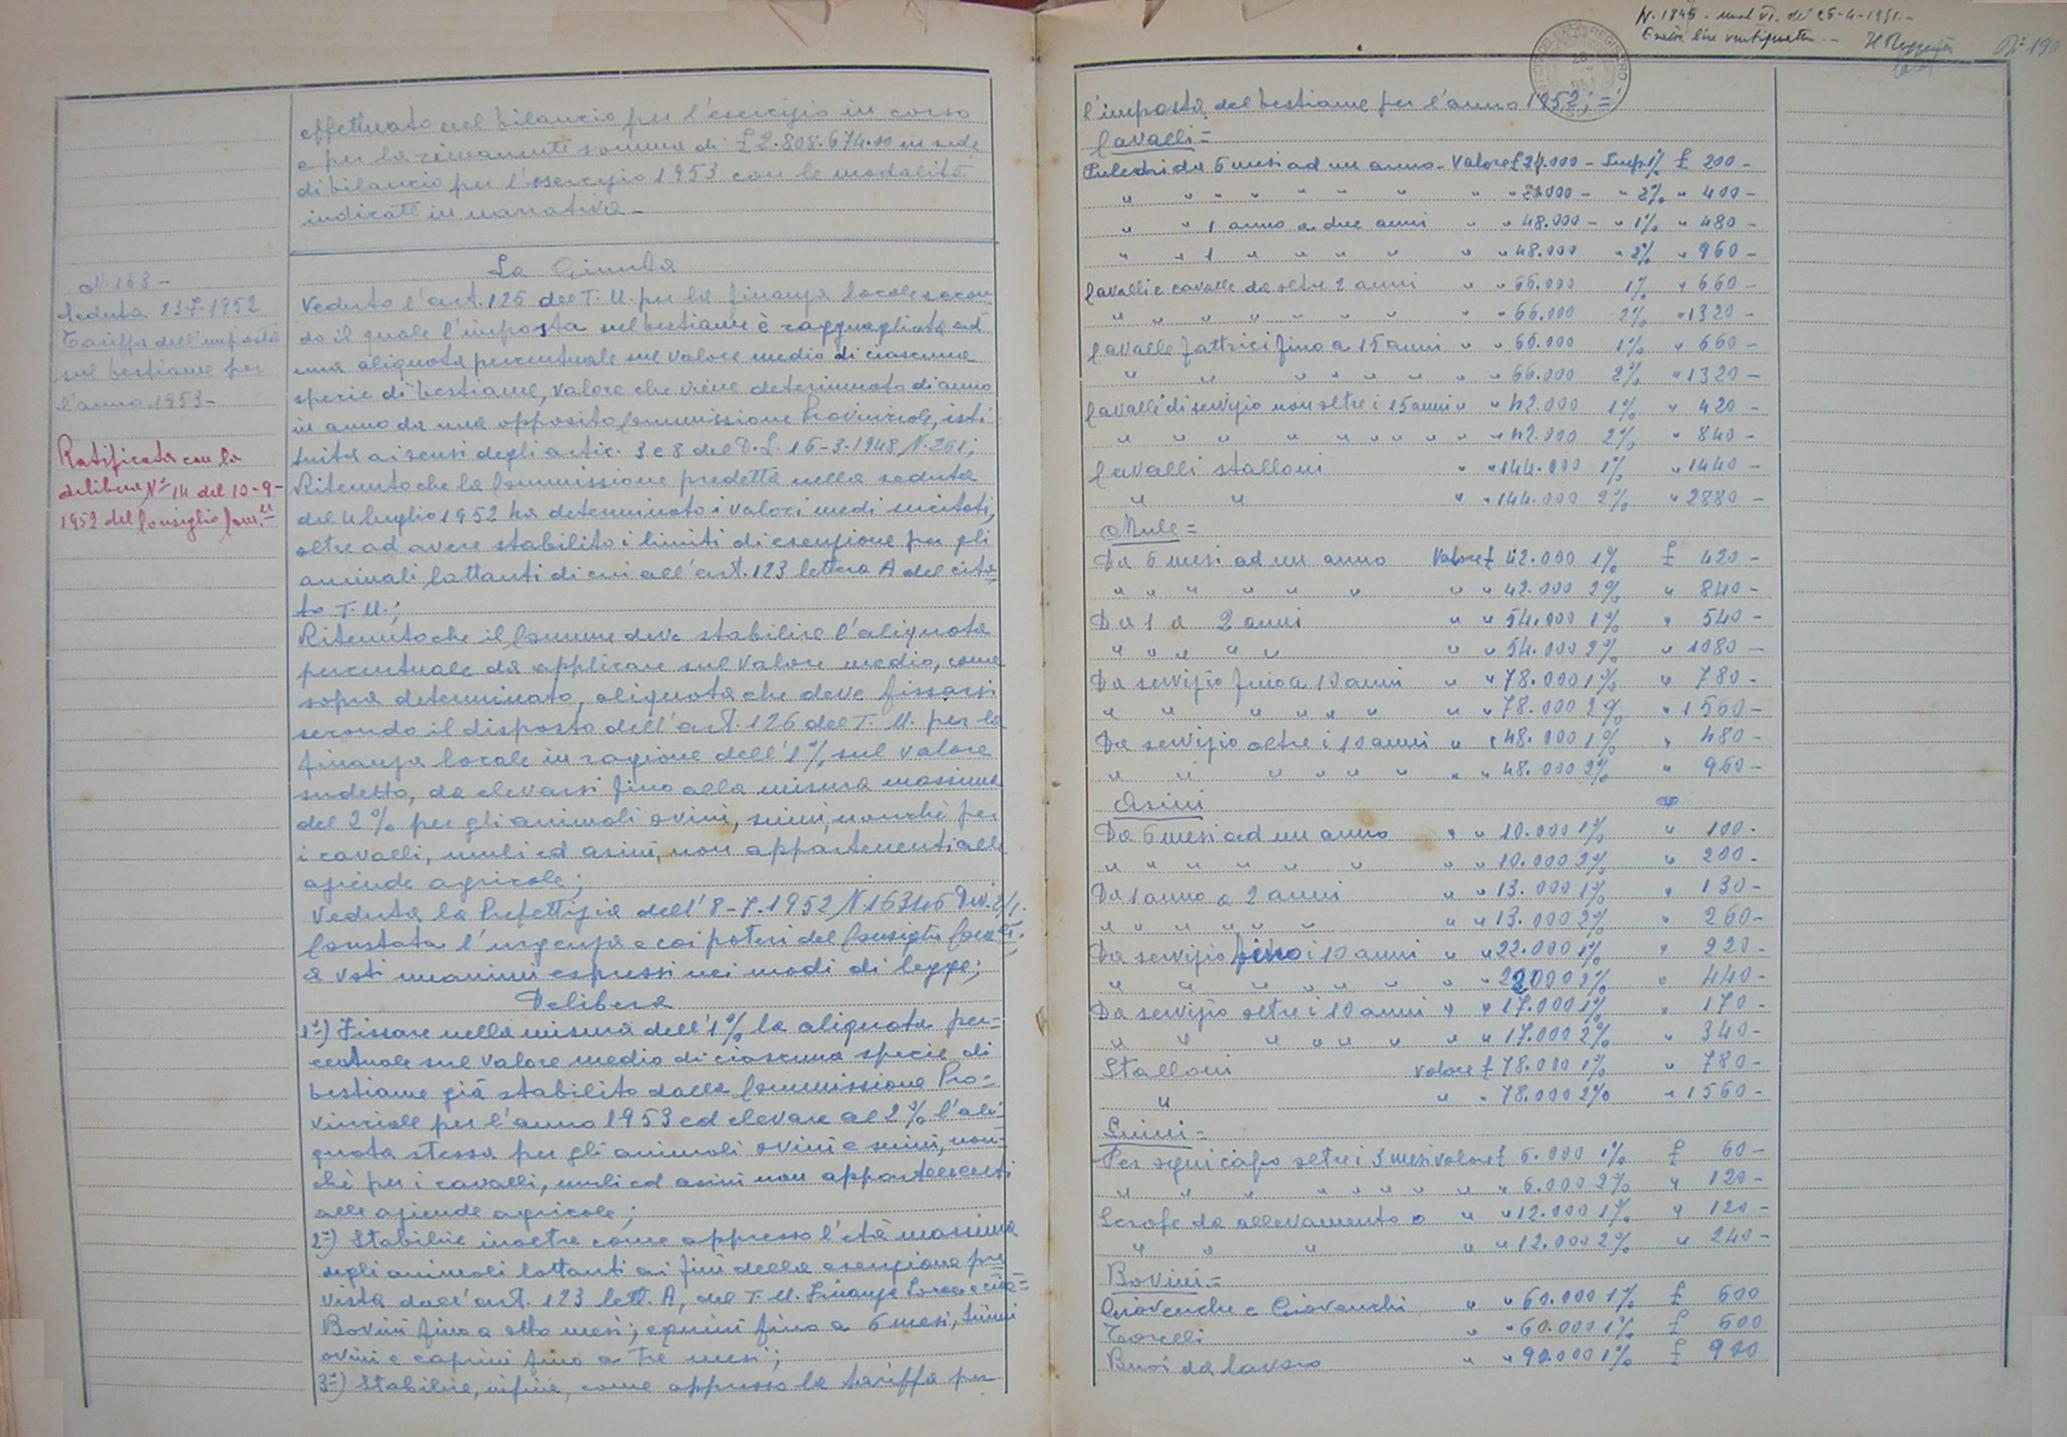 effettuato nel bilancio per l'esercizio in corso
e per la rimanente somma di £ 2.808.674.00 in sede
di bilancio per l'esercizio 1953 con le modalità
indicate in narrativa -
N. 168 -
Seduta 23-7-1952
Tariffa dell'imposta
sul bestiame per
l'anno 1953-
Ratificata con la
delibera Nº 14 del 10-9-
1952 del Consiglio Com.le
La Giunta
Veduto l'art. 126 del T.U. per la finanza locale secon
do il quale l'imposta sul bestiame è ragguagliata ad
una aliquota percentuale sul valore medio di ciascuna
specie di bestiame, valore che viene determinato di anno
in anno da una apposita Commissione Provinciale, isti-
tuita ai sensi degli artic. 3 e 8 del D.L. 16-3-1948 N. 261;
Ritenuto che la Commissione predetta nella seduta
del 4 luglio 1952 ha determinato i valori medi succitati,
oltre ad avere stabilito i limiti di esenzione per gli
animali lattanti di cui all'art. 123 lettera A del cita=
to T.U.;
Ritenuto che il Comune deve stabilire l'aliquota
percentuale da applicare sul valore medio, come
sopra determinato, aliquota che deve fissarsi
secondo il disposto dell'art. 126 del T.U. per la
finanza locale in ragione dell'1% sul valore
sudetto, da elevarsi fino alla misura massima
del 2% per gli animali ovini, suini, nonchè per
i cavalli, muli ed asini, non appartenenti alle
aziende agricole;
Veduta la Prefettizia dell'8-7-1952 N 16346 Div. 2/1.
Constata l'urgenza e coi poteri del Consiglio Com.le
a voti unanimi espressi nei modi di legge;
Delibera
1º) Fissare nella misura dell'1% la aliquota per-
centuale sul valore medio di ciascuna specie di
bestiame già stabilito dalla Commissione Pro=
vinciale per l'anno 1953 ed elevare al 2% l'ali-
quota stessa per gli animali ovini e suini, non=
chè per i cavalli, muli ed asini non appartenenti
alle aziende agricole;
2º) Stabilire inoltre come appresso l'età massima
degli animali lattanti ai fini della esenzione pre
vista dall'art. 123 lett. A, del T.U. Finanza Locale cita=
Bovini fino a otto mesi; equini fino a 6 mesi, suini
ovini e caprini fino a tre mesi;
3º) Stabilire, infine, come appresso la tariffa per
N. 1845 - del 26-4-1951 -
Esatte lire ventiquattro -
Nº 190
l'imposta del bestiame per l'anno 1952; =
Cavalli =
Puledri da 6 mesi ad un anno - Valore £ 24.000 - Imp. 1% £ 200 -
" " " " " " " " " 2%" 400 -
" " 1 anno a due anni " " 48.000 - " 1% " 480 -
" " 1 " " " " " " 48.000 " 2% " 960 -
Cavalli e cavalle da oltre 2 anni " " 66.000 1% " 660 -
" " " " " " " " " 66.000 2% " 1320 -
Cavalle fattrici fino a 15 anni " " 66.000 1% " 660 -
" " " " " " " " 66.000 2% " 1320 -
Cavalli di servizio non oltre i 15 anni " " 42.000 1% " 420 -
" " " " " " " " " " 42.000 2% " 840 -
Cavalli stalloni " " 144.000 1% " 1440 -
" " " " 144.000 2% " 2880 -
Mule =
Da 6 mesi ad un anno Valore £ 42.000 1% £ 420 -
" " " " " " " " 42.000 2% " 840 -
Da 1 a 2 anni " " 54.000 1% " 540 -
" " " " " " " 54.000 2% " 1080 -
Da servizio fino a 10 anni " " 78.000 1% " 780 -
" " " " " " " " 78.000 2% " 1560 -
Da servizio oltre i 10 anni " " 48.000 1% " 480 -
" " " " " " " " 48.000 2% " 960 -
Asini
Da 6 mesi ad un anno " " 10.000 1% " 100 -
" " " " " " " " 10.000 2% " 200 -
Da 1 anno a 2 anni " " 13.000 1% " 130 -
" " " " " " " " 13.000 2% " 260 -
Da servizio fino i 10 anni " " 22.000 1% " 220 -
" " " " " " " " 22000 2% " 440 -
Da servizio oltre i 10 anni " " 17.000 1% " 170 -
" " " " " " " " 17.000 2% " 340 -
Stalloni Valore £ 78.000 1% " 780 -
" " " 78.000 2% " 1560 -
Suini =
Per ogni capo oltre i 3 mesi valore £ 6.000 1% £ 60 -
" " " " " " " " " 6.000 2% " 120 -
Scrofe da allevamento " " 12.000 1% " 120 -
" " " " " 12.000 2% " 240 -
Bovini =
Giovenche e Giovenchi " " 60.000 1% £ 600
Torelli " " 60.000 1% £ 600
Buoi da lavoro " " 90.000 1% £ 900